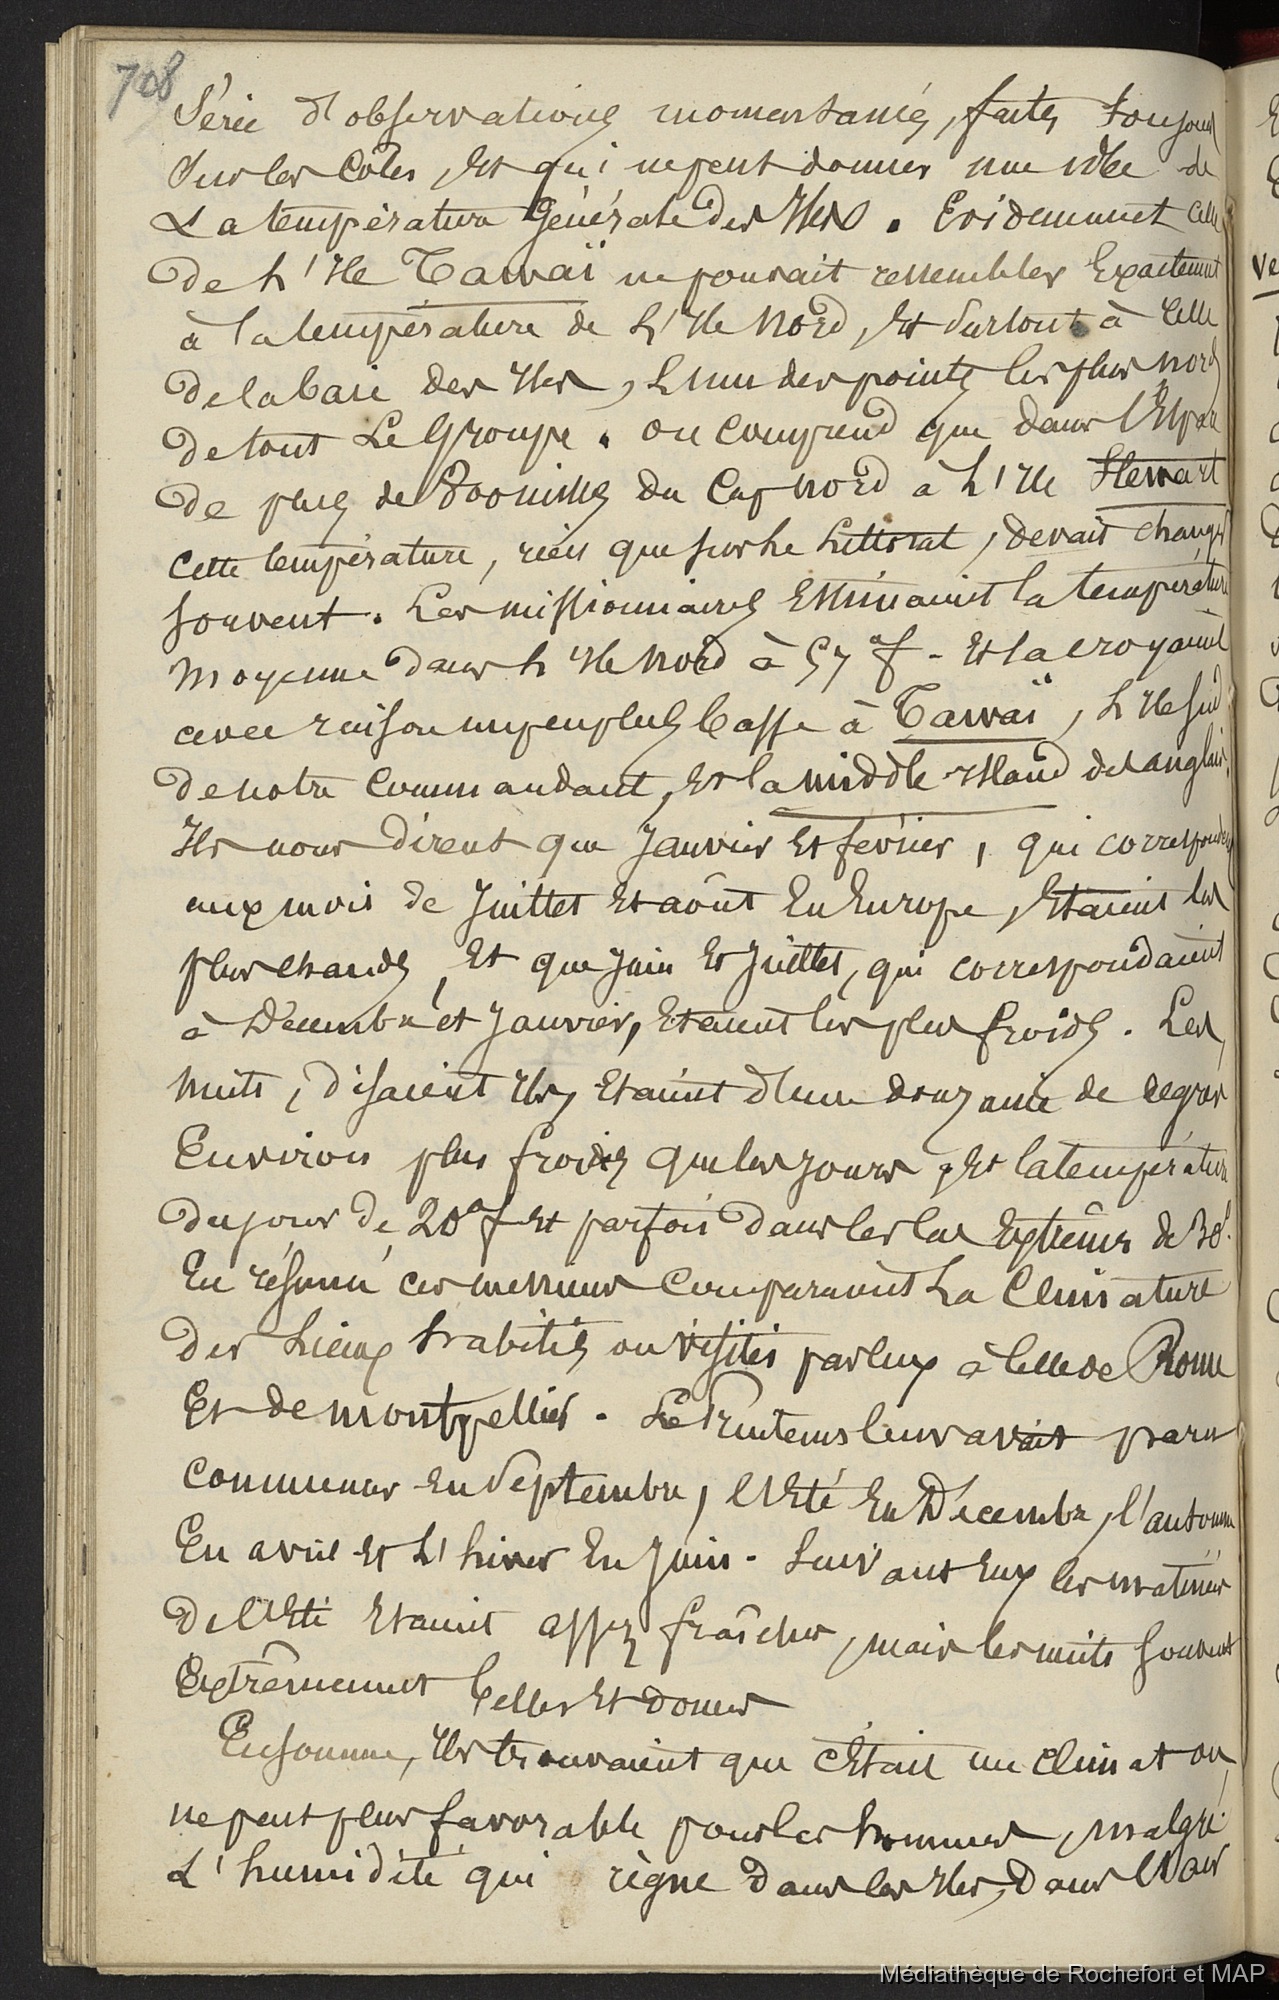 708
Série d'observations momentanées, faites toujours
sur les Côtes, et qui ne peut donner une idée de
La température Générale des Iles. Evidemment celle
de L'Ile Tawaï ne pouvait ressembler Exactement
à la température de L'Ile Nord, et surtout à celle
de la baie des Iles, L'une des points les plus nord
de tout Le Groupe. on comprend que dans l'Espace
de plus de milles du Cap nord à L'Ile Stewart
cette température, rien que sur le Littoral, devait changer
souvent. Les missionnaires Estimaient la température
moyenne dans L'Ile Nord à 57° f - Et la croyaient
avec raison un peu plus basse à Tawaï, L'Ile sud
de notre Commandant, et la middle-Island des anglais.
Ils nous dirent que Janvier Et février, qui correspondent
aux mois de Juillet Et août En Europe, Etaient les
plus chauds, Et que Juin Et Juillet, qui correspondaient
à Décembre et Janvier, Etaient les plus froids. Les
nuits, disaient Ils, Etaient d'une douzaine de degrés
Environ plus froides que les jours, Et la température
du jour de 20° f Et parfois dans les cas Extrêmes de 30°.
En résumé ces messieurs Comparaient La Climature
Des Lieux habités ou visités par Eux à Celle de Rome
Et de montpellier. Le Printems leur avait paru
commencer En Septembre, l'Eté En Décembre, l'automne
En avril Et L'hiver En Juin. Suivant Eux les matinées
de l'Eté Etaient assez fraîches, mais les nuits souvent
Extrêmement belles Et douces
En somme, Ils trouvaient que c'Etait un climat on
ne peut plus favorable pour les hommes, malgré
L'humidité qui règne dans les Iles, Dans l'Air
Médiathèque de Rochefort et MAP